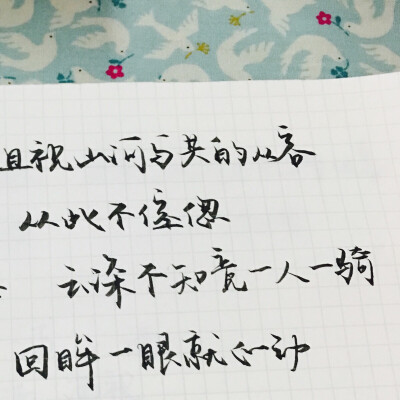 且祝山河与共的从容
从此不倥偬
云深不知竟一人一骑
回眸一眼就心动